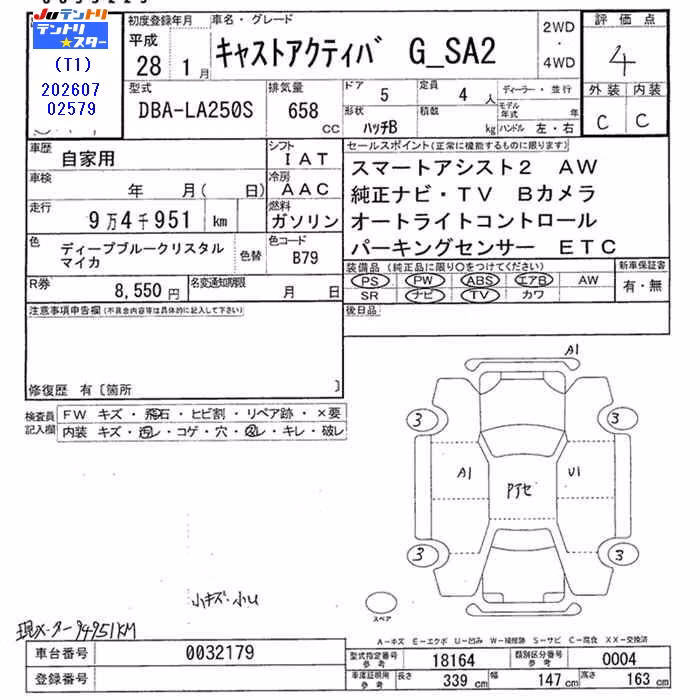 JU テントリ
テントリ★スター
(T1)
202607
02579
初度登録年月
平成
28 1月
車名・グレード
キャストアクティバ G_SA2
2WD
・
4WD
評価点
4
外装 内装
C C
型式
DBA-LA250S
排気量
658
CC
ドア 5
定員 4人
ディーラー・並行
モデル年式 年
形状 ハッチB
積数 kg
ハンドル 左・右
車歴 自家用
シフト IAT
車検 年 月( 日)
冷房 AAC
走行 9万4千951 km
燃料 ガソリン
色 ディープブルークリスタル
マイカ
色替
色コード B79
R券 8,550円
名変通知期限 月 日
セールスポイント(正常に機能するものに限ります)
スマートアシスト2 AW
純正ナビ・TV Bカメラ
オートライトコントロール
パーキングセンサー ETC
装備品(純正品に限り○をつけてください)
PS PW ABS エアB AW
SR ナビ TV カワ
新車保証書
有・無
後日品
注意事項申告欄(不具合内容等は具体的に記入して下さい)
修復歴 有〔箇所 〕
検査員
記入欄
FW キズ・飛石・ヒビ割・リペア跡・×要
内装 キズ・汚レ・コゲ・穴・スレ・キレ・破レ
A1
3 3
A1 U1
Pアセ
3 3
スペア
小キズ・小U
現メーター94951KM
A-キズ E-エクボ U-凹み W-補修跡 S-サビ C-腐食 XX-交換済
車台番号 0032179
登録番号
型式指定番号
参考
18164
類別区分番号
参考
0004
車庫証明用
参考
長さ 339 cm
幅 147 cm
高さ 163 cm